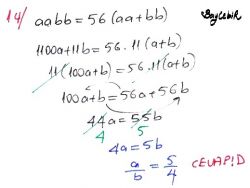 14/ aabb = 56(aa+bb) BayLebiR
1100a+11b = 56.11(a+b)
11(100a+b) = 56.11(a+b)
100a+b = 56a+56b
44a = 55b
4 5
4a = 5b
a/b = 5/4 CEVAP:D